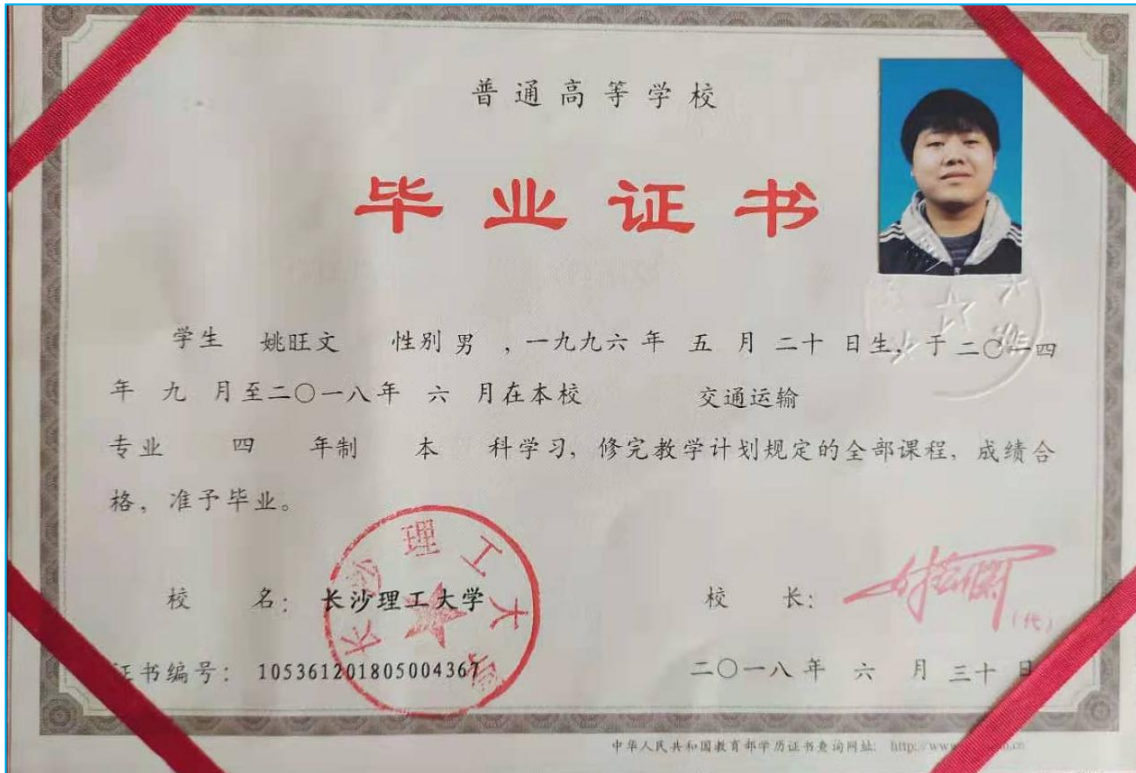 普通高等学校
毕业证书
学生 姚旺文 性别 男 ，一九九六 年 五 月 二十 日生，于 二〇一四
年 九 月至二〇一八年 六 月在本校 交通运输
专业 四 年制 本 科学习，修完教学计划规定的全部课程，成绩合
格，准予毕业。
长沙理工大学
校 名：长沙理工大学 校 长：
（代）
证书编号：105361201805004367 二〇一八年 六 月 三十 日
中华人民共和国教育部学历证书查询网址： http://www